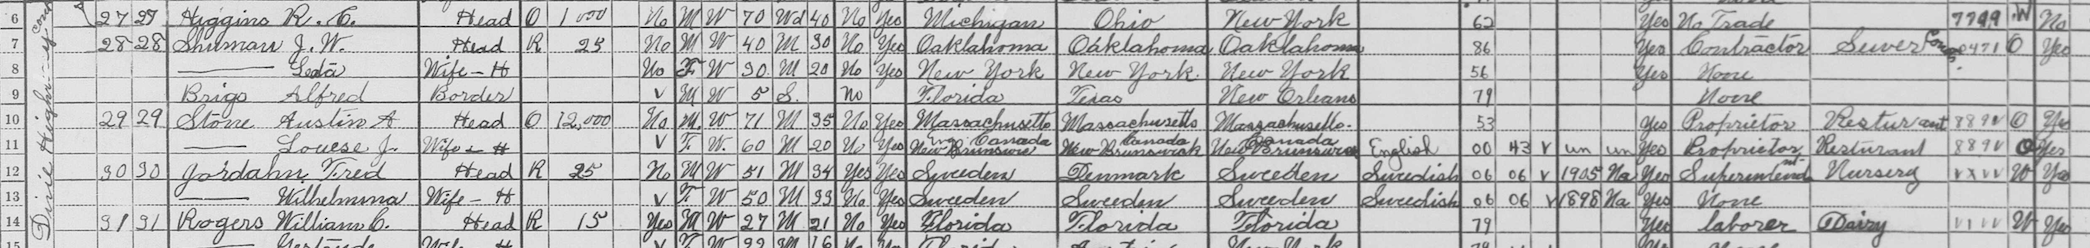 6 27 27 Higgins R. C. Head O 1000 No M W 70 Wd 40 No Yes Michigan Ohio New York 62 Yes No Trade 7799 W No
7 28 28 Shuman J. W. Head R 25 No M W 40 M 30 No Yes Oaklahoma Oaklahoma Oaklahoma 86 Yes Contractor Sewer Cons. 0471 O Yes
8 Wife-H No F W 30 M 20 No Yes New York New York New York 56 Yes None
9 Brigs Alfred Border v M W 5 S. no Florida Texas New Orleans 79 None
10 29 29 Stone Austin A Head O 12,000 No M W 71 M 35 No Yes Massachusetts Massachusetts Massachusetts 53 Yes Proprietor Resturant 889V O Yes
11 Louese J. Wife-H v F W 60 M 20 No Yes New Brunswic Canada New Brunswick Canada New Brunswick Canada English 00 43 v un un Yes Proprietor Resturant 889V O Yes
12 30 30 Jordahn Fred Head R 25 No M W 51 M 34 Yes Yes Sweeden Denmark Sweeden Swedish 06 06 v 1905 Na Yes Superintendent Nursery VXVV W Yes
13 Wilhelmma Wife-H v F W 50 M 33 No Yes Sweeden Sweeden Sweeden Swedish 06 06 v 1898 Na Yes None
14 31 31 Rogers William C. Head R 15 Yes M W 27 M 21 No Yes Florida Florida Florida 79 Yes laborer Dairy VIVV W Yes
15 Gertrude Wife H v F W 22 M 16 No Yes Florida New York 79
Dixie Highway